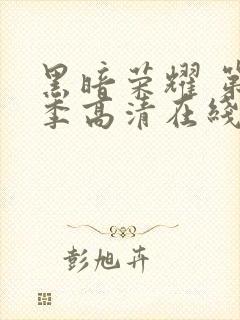 黑暗荣耀 第
季高清在线
彭旭卉